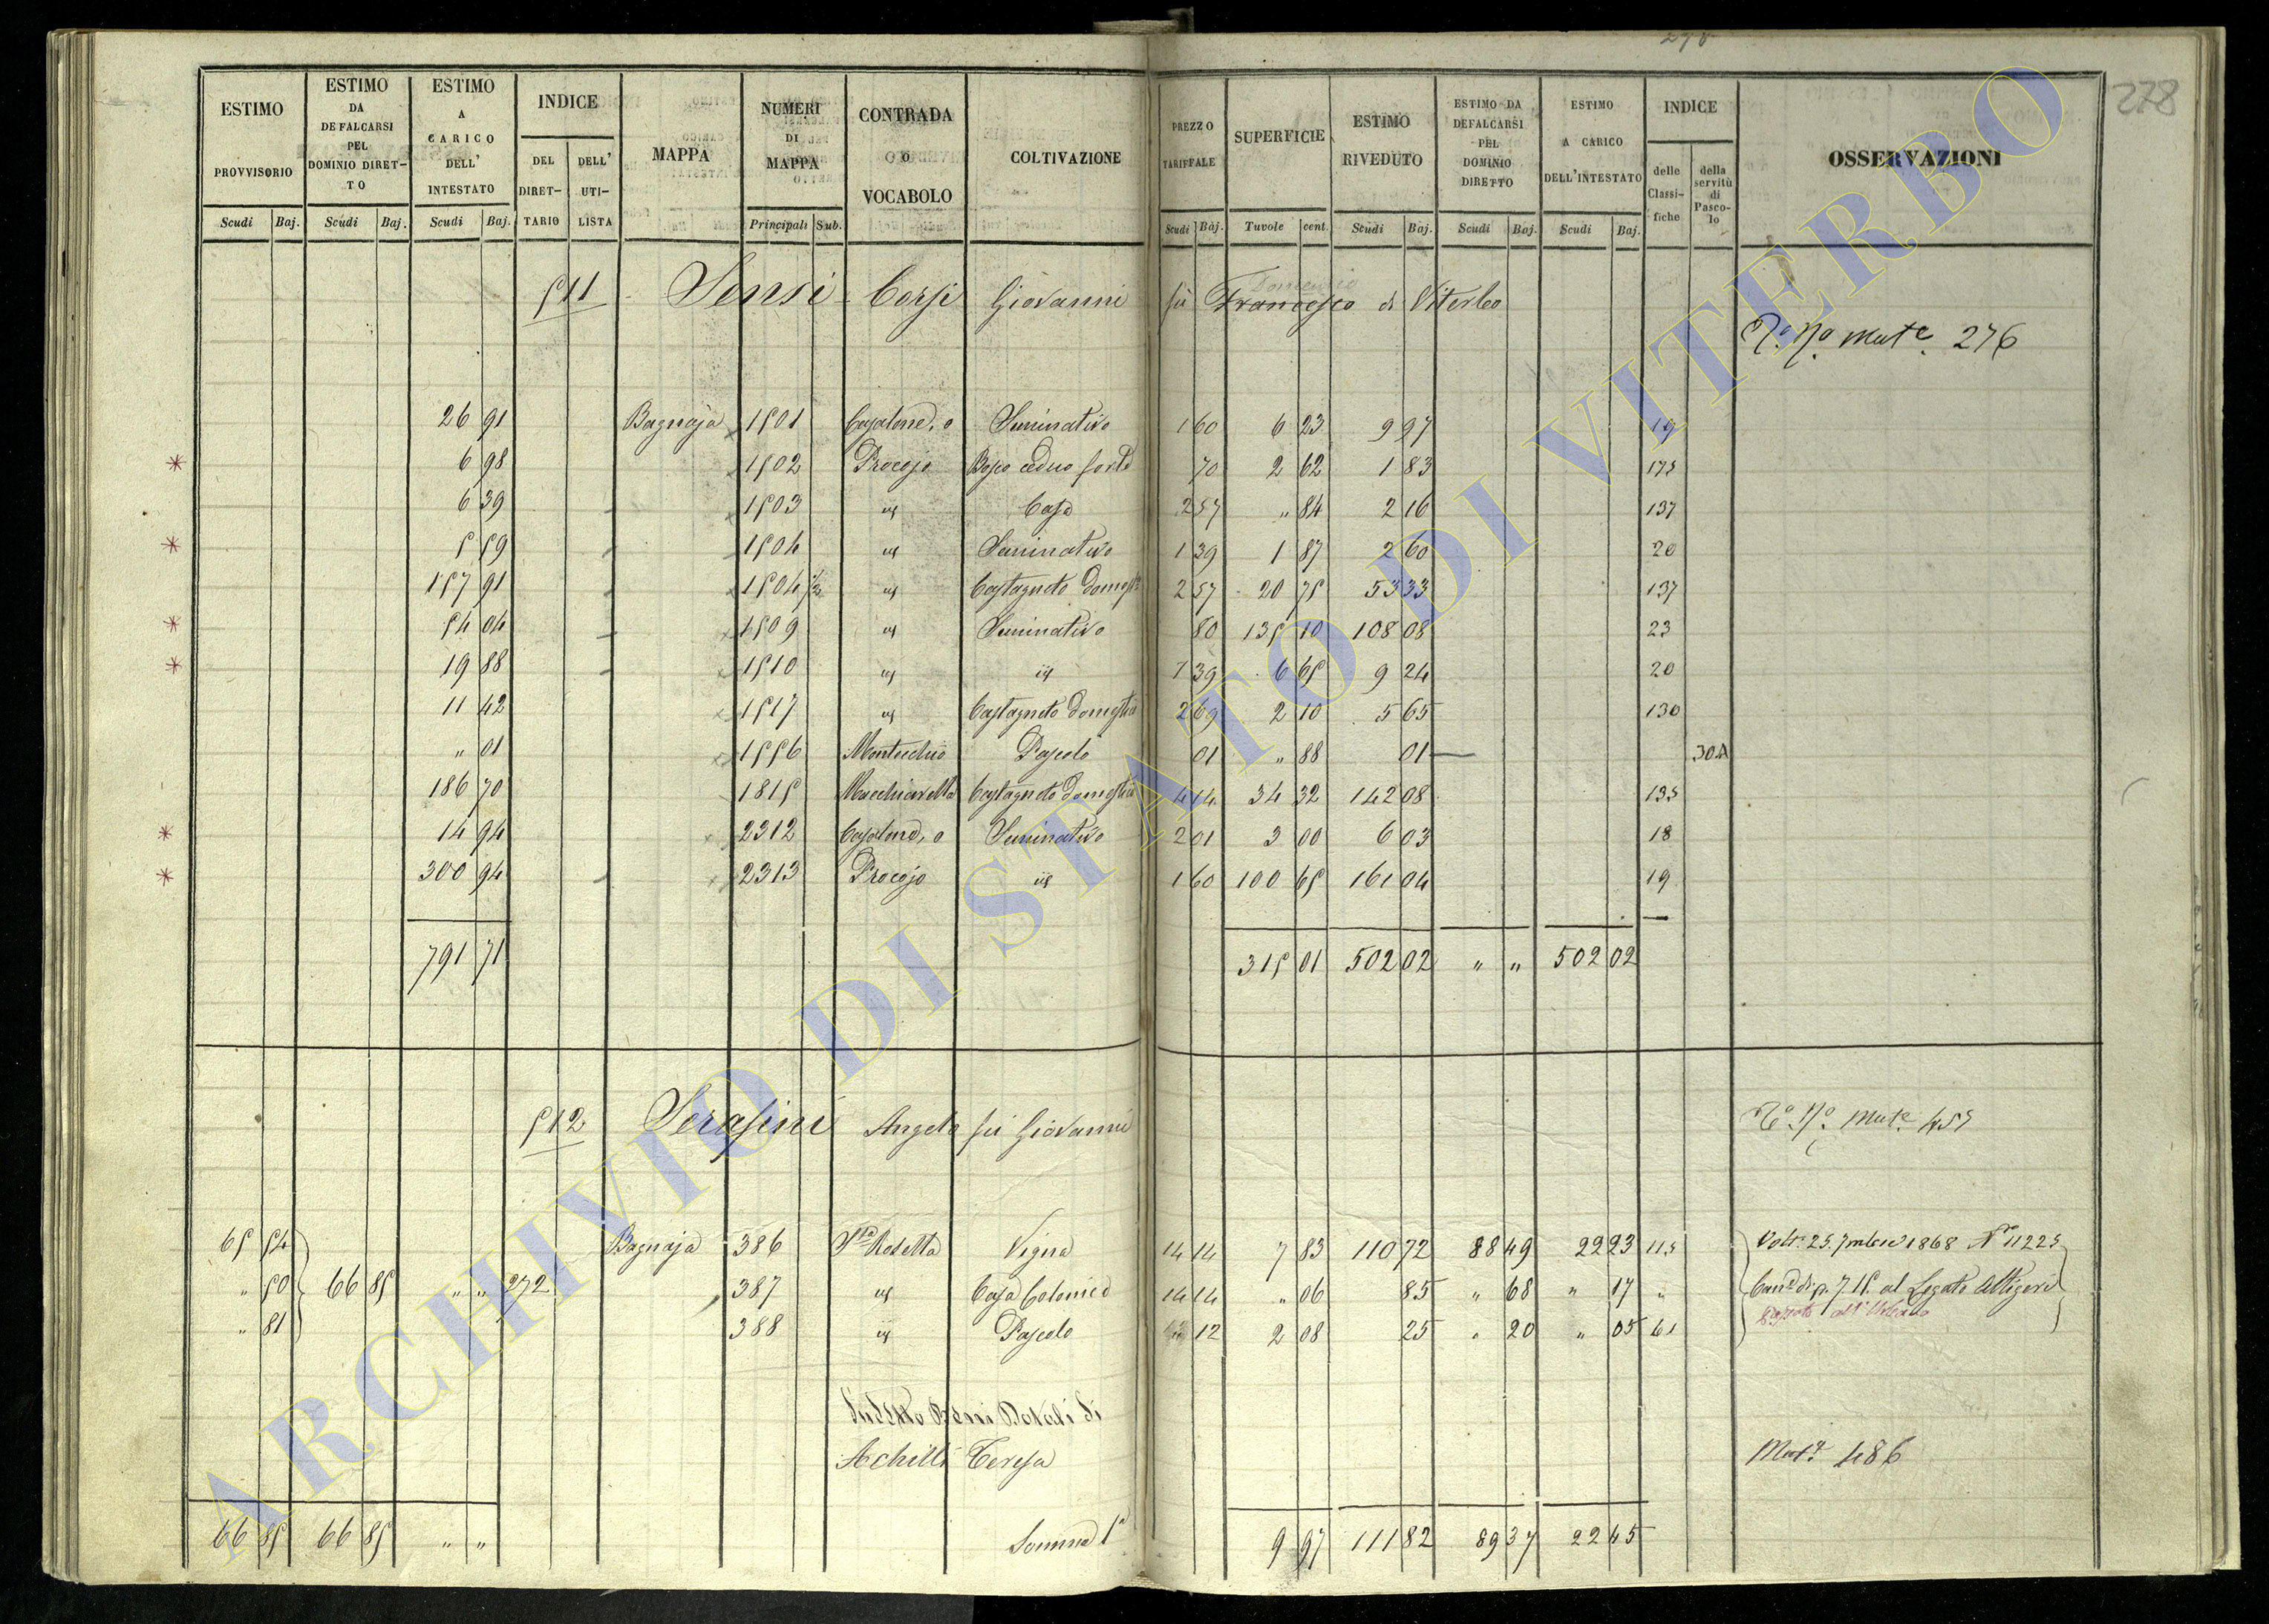 278
ESTIMO PROVVISORIO | ESTIMO DA DEFALCARSI PEL DOMINIO DIRETTO | ESTIMO A CARICO DELL' INTESTATO | INDICE DEL DIRETTARIO | DELL' UTILISTA | MAPPA | NUMERI DI MAPPA | CONTRADA O VOCABOLO | COLTIVAZIONE | PREZZO TARIFFALE | SUPERFICIE | ESTIMO RIVEDUTO | ESTIMO DA DEFALCARSI PEL DOMINIO DIRETTO | ESTIMO A CARICO DELL'INTESTATO | INDICE delle Classifiche | della servitù di Pascolo | OSSERVAZIONI
Scudi | Baj. | Scudi | Baj. | Scudi | Baj. | Principali | Sub. | Scudi | Baj. | Tavole | cent. | Scudi | Baj. | Scudi | Baj. | Scudi | Baj.
511 Sensi Corsi Giovanni fù Francesco di Viterbo
Domenico
Mute. 276
26 91 Bagnaja 1501 Casalone, o Seminativo 1 60 6 23 9 97 19
* 6 98 1502 Procojo Bosco ceduo forte 70 2 62 1 83 175
6 39 1503 id Casa 2 57 " 84 2 16 137
* 5 59 1504 id Seminativo 1 39 1 87 2 60 20
157 91 1504 1/2 id Castagneto Domest 2 57 20 75 53 33 137
* 54 04 1509 id Seminativo 80 135 10 108 08 23
* 19 88 1510 id id 1 39 6 65 9 24 20
11 42 1517 id Castagneto domestico 2 69 2 10 5 65 130
" 01 1556 Montecchio Pascolo 01 " 88 01 30A
186 70 1815 Macchiarella Castagneto domestico 4 14 34 32 142 08 135
* 14 94 2312 Casalone, o Seminativo 2 01 3 00 6 03 18
* 300 94 2313 Procojo id 1 60 100 65 161 04 19
791 71 315 01 502 02 " " 502 02
512 Serafini Angelo fù Giovanni
Mute 455
65 54 Bagnaja 386 Sta Rosetta Vigna 14 14 7 83 110 72 88 49 22 23 115 Volt. 25. 7mbre 1868 N 11225
" 50 66 85 " " 272 387 id Casa Colonica 14 14 " 06 85 " 68 " 17 " al Legato Altigeri
" 81 388 id Pascolo 12 2 08 25 " 20 " 05 61
Sudetto Beni Dotali di
Achilli Teresa
Muta 486
66 85 66 85 " " Somma 9 97 111 82 89 37 22 45
ARCHIVIO DI STATO DI VITERBO